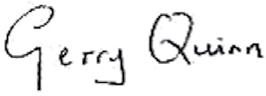 Gerry Quinn